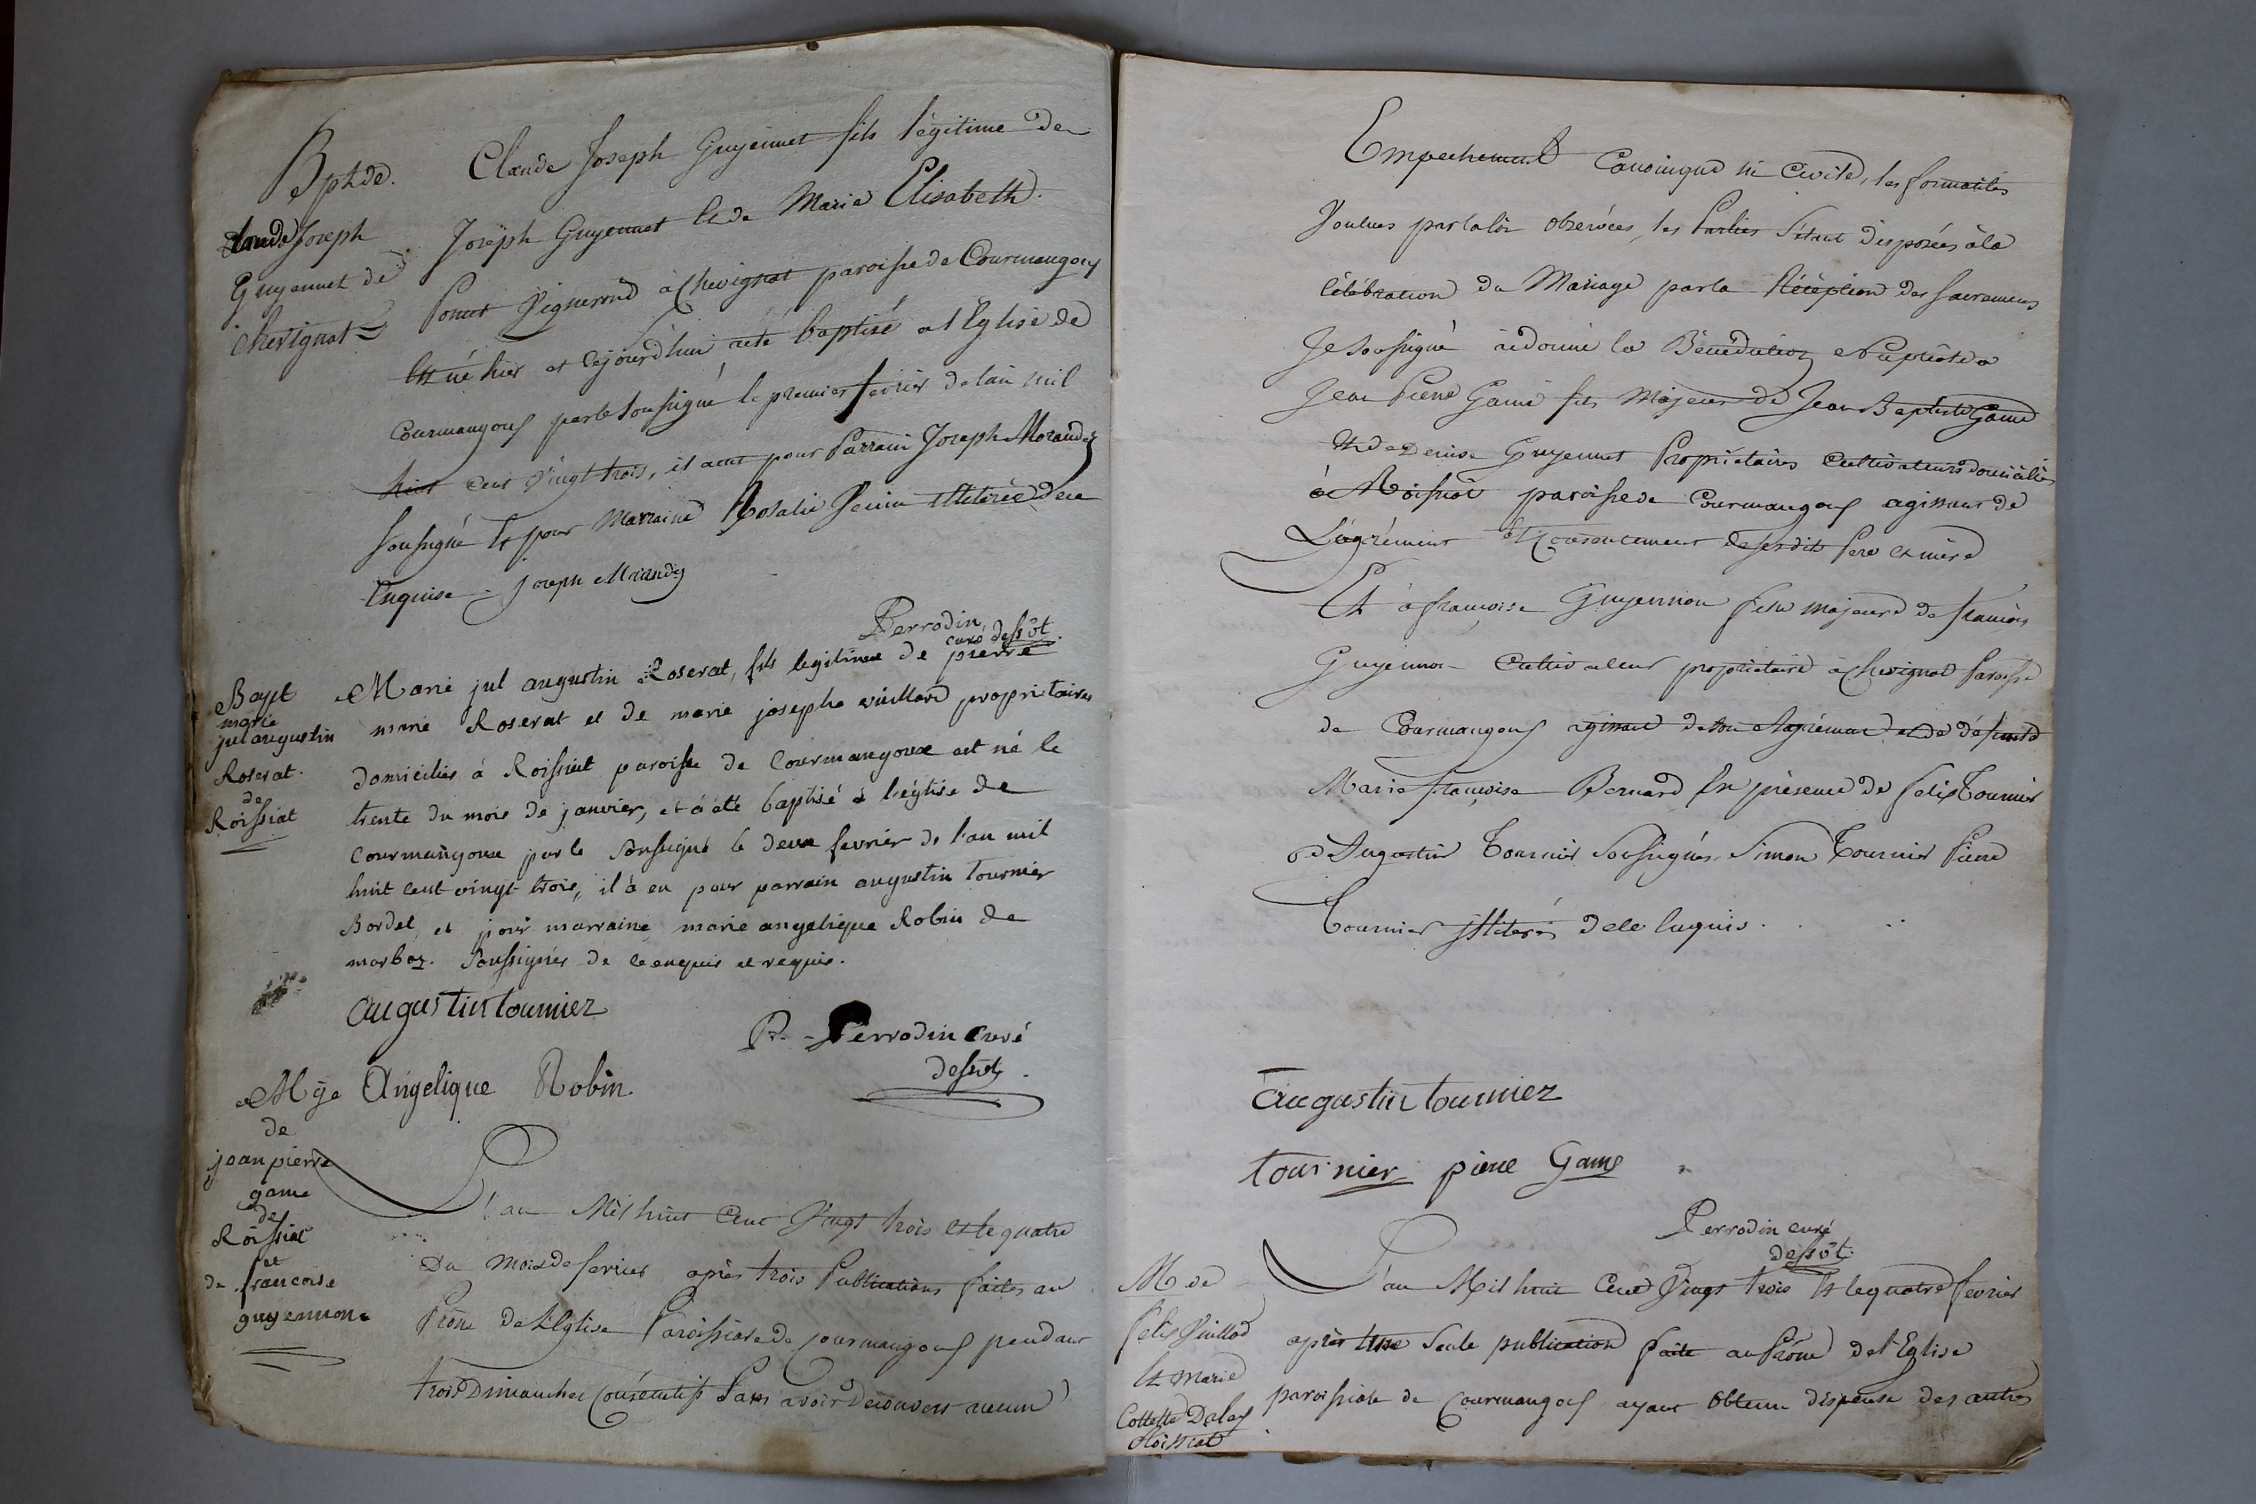 Bpt de.
Claude Joseph
Guyennet de
Chevignat
Claude Joseph Guyennet fils légitime de
Joseph Guyennet Et de Marie Elisabeth.
Poncet Vigneron à Chevignat paroisse de Courmangoux
Est né hier et cejourd'hui a été baptisé a l'Eglise de
Courmangoux par le soussigné le premier fevrier de l'an mil
huit cent vingt trois, il a eut pour Parrain Joseph Morandy
soussigné Et pour Marraine Rosalie illiterée de ce
Enquise. Joseph Morandy
Perrodin
curé dessôt.
Bapt
marie
jul augustin
Roserat.
de
Roissiat
Marie jul augustin Roserat, fils legitime de pierre
marie Roserat et de marie josephe vuillard propriétaires
domiciliés à Roissiat paroisse de Courmangoux est né le
trente du mois de janvier, et a été baptisé à l'église de
Courmangoux par le soussigné le deux fevrier de l'an mil
huit cent vingt trois, il à eu pour parrain augustin tournier
Bordel, et pour marraine marie angelique Robin de
marboz. Soussignés de ce enquis et requis.
augustin tournier
P. Perrodin curé
dessôt.
Angelique Robin.
Mge
de
jean pierre
game
de
Roissiat
et
de francoise
guyennon
L'an Mil huit Cent Vingt trois et le quatre
du mois de fevrier après trois Publications faites au
Prône de l'Eglise Paroissiale de Courmangoux pendant
trois Dimanches Consécutifs Sans avoir Découvert aucun
Empechement Canonique ni Civile, les formalités
Voulues par la loi observées, les Parties s'étant disposées à la
Célébration du Mariage par la Réception des sacremens
Je soussigné ai donné la Bénédiction Nuptiale a
Jean Pierre Game fils Majeur de Jean Baptiste Game
Et de Denise Guyennet Propriétaires cultivateurs domiciliés
à Roissiat paroisse de Courmangoux agissant de
L'agrément Et Consentement de ses dits Pere et mère
Et à françoise Guyennon fille majeure de françois
Guyennon Cultivateur propriétaire à Chevignat Paroisse
de Courmangoux agissant de son Agrément et de défunte
Marie françoise Bernard En présence de felix Tournier
d'Augustin Tournier Soussignés. Simon Tournier Pierre
Tournier illiterés de ce Enquis.
augustin tournier
tournier pierre Game
Perrodin curé
dessôt.
M. de
felix Vuillod
Et Marie
Collette Dalay
Roissiat
L'an Mil huit Cent Vingt trois Et le quatre fevrier
après Une Seule publication faite au Prône de l'Eglise
paroissiale de Courmangoux ayant Obtenu dispense des autres